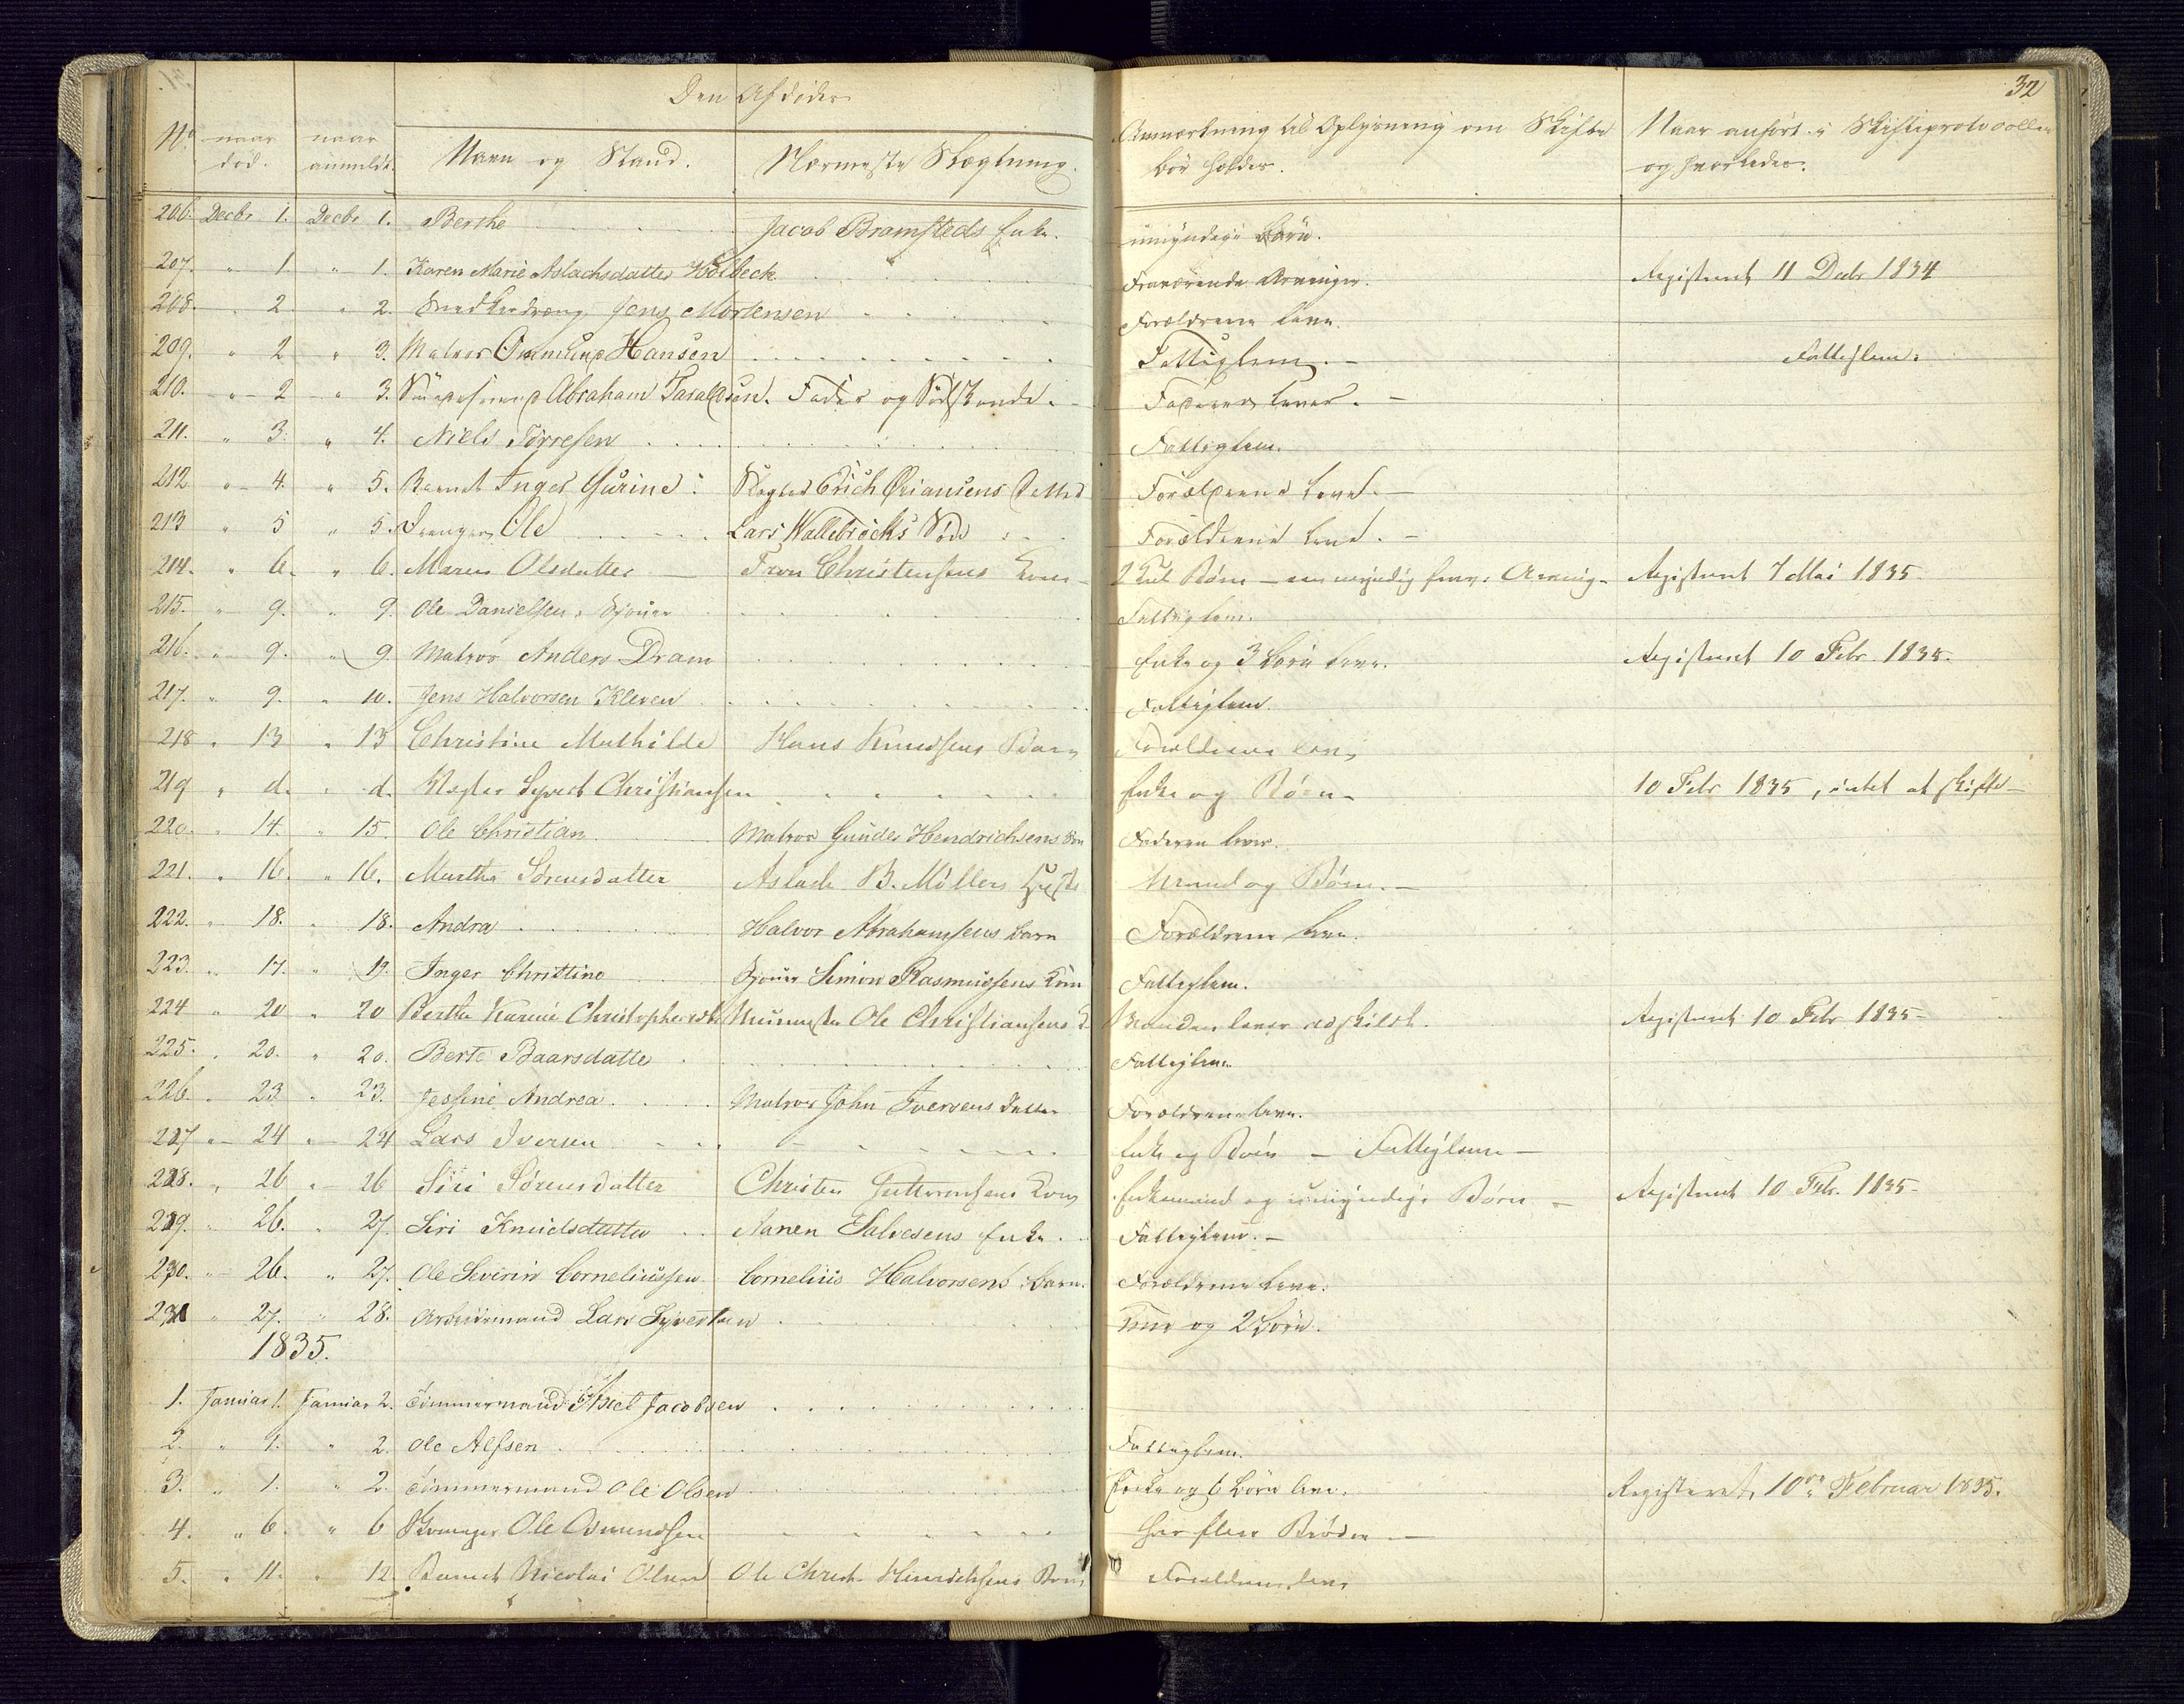 32
Den Afdødes
No naar død. naar anmeldt. Navn og Stand. Nærmeste Slægtning. Anmærkning til Oplysning om Skifte bør holdes. Naar anført i Skifteprotocollen og hvorledes.
206. Decbr 1. Decbr 1. Berthe Jacob Bramsteds Enke. umyndige Børn.
207. " 1. " 1. Karen Marie Aslachsdatter Holbeck Fraværende Arvinger. Registreret 11 Decbr 1834
208. " 2. " 2. Jens Mortensen Forældrene leve.
209. " 2 " 3. Matros Ommund Hansen Fattiglem. Fattiglem.
210. " 2 " 3. Abraham Taraldsen. Fader og Sødskende. Faderen lever.
211. " 3. " 4. Niels Tørresen Fattiglem.
212 " 4. " 5. Barnet Inger Gurine: Erich Øriansens Datter Forældrene leve.
213 " 5 " 5. Drengen Ole Lars Wallebrocks Søn Forældrene leve.
214. " 6. " 6. Maren Olsdatter Tron Christensens Kone 2 Kuld Børn - en umyndig frav: Arving. Registreret 7 Mai 1835
215. " 9. " 9. Ole Danielsen, Sjouer Fattiglem.
216. " 9. " 9. Matros Anders Dram Enke og 3 Børn leve. Registreret 10 Febr. 1835.
217. " 9. " 10. Jens Halvorsen Kleven Fattiglem.
218 " 13 " 13 Christine Mathilde Hans Knudsens Barn Forældrene leve
219 " d. " d. Sivert Christiansen Enke og Børn 10 Febr 1835, intet at skifte
220. " 14. " 15. Ole Christian Matros Gunder Hendrichsens Søn Faderen lever.
221. " 16. " 16. Martha Sörensdatter Aslach B. Möllers Mand og Børn.
222. " 18. " 18. Andrea Halvor Abrahamsens Barn Forældrene leve.
223. " 17. " 19. Inger Christine Sjouer Simon Rasmussens Kone Fattiglem.
224 " 20 " 20 Berthe Karine Christophersdtr Muurmester Ole Christiansens K. Manden lever adskildt. Registreret 10 Febr 1835
225. " 20. " 20. Berte Baarsdatter Fattiglem
226. " 23 " 23. Jessine Andrea Matros John Iversens Datter Forældrene leve.
227 " 24 " 24 Lars Iversen Enke og Børn - Fattiglem -
228. " 26 " 26 Siri Sörensdatter Christen Guttormsens Kone Enkemand og umyndige Børn Registreret 10 Febr. 1835
229. " 26. " 27. Siri Knudsdatter Aanen Salvesens Enke. Fattiglem.
230. " 26. " 27. Ole Severin Corneliussen Cornelius Halvorsens Barn. Forældrene leve.
231 " 27. " 28. Arbeidsmand Lars Syvertsen Kone og 2 Børn.
1835.
1. Januar 1. Januar 2. Tømmermand Jacobsen
2. " 1. " 2. Ole Alfsen Fattiglem.
3. " 1. " 2. Tømmermand Ole Olsen Enke og 6 Børn leve. Registeret, 10de Februar 1835.
4. " 6. " 6 Ole Osmundsen har flere Brødre
5. " 11. " 12. Barnet Nicolai Olsen Ole Christ. Hinrichsens Barn Forældrene leve